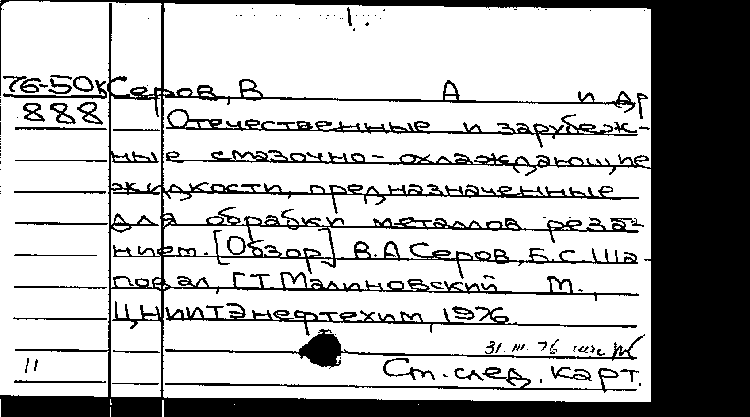 1.
76-50к Серов, В А и др
888 Отечественные и зарубеж-
ные смазочно-охлаждающие
жидкости, предназначенные
для обрабки металлов реза-
нием. [Обзор] В.А.Серов, Б.С.Ша-
повал, Г.Т.Малиновский М.,
ЦНИИТЭнефтехим, 1976.
31.III.76
11 См.след.карт.